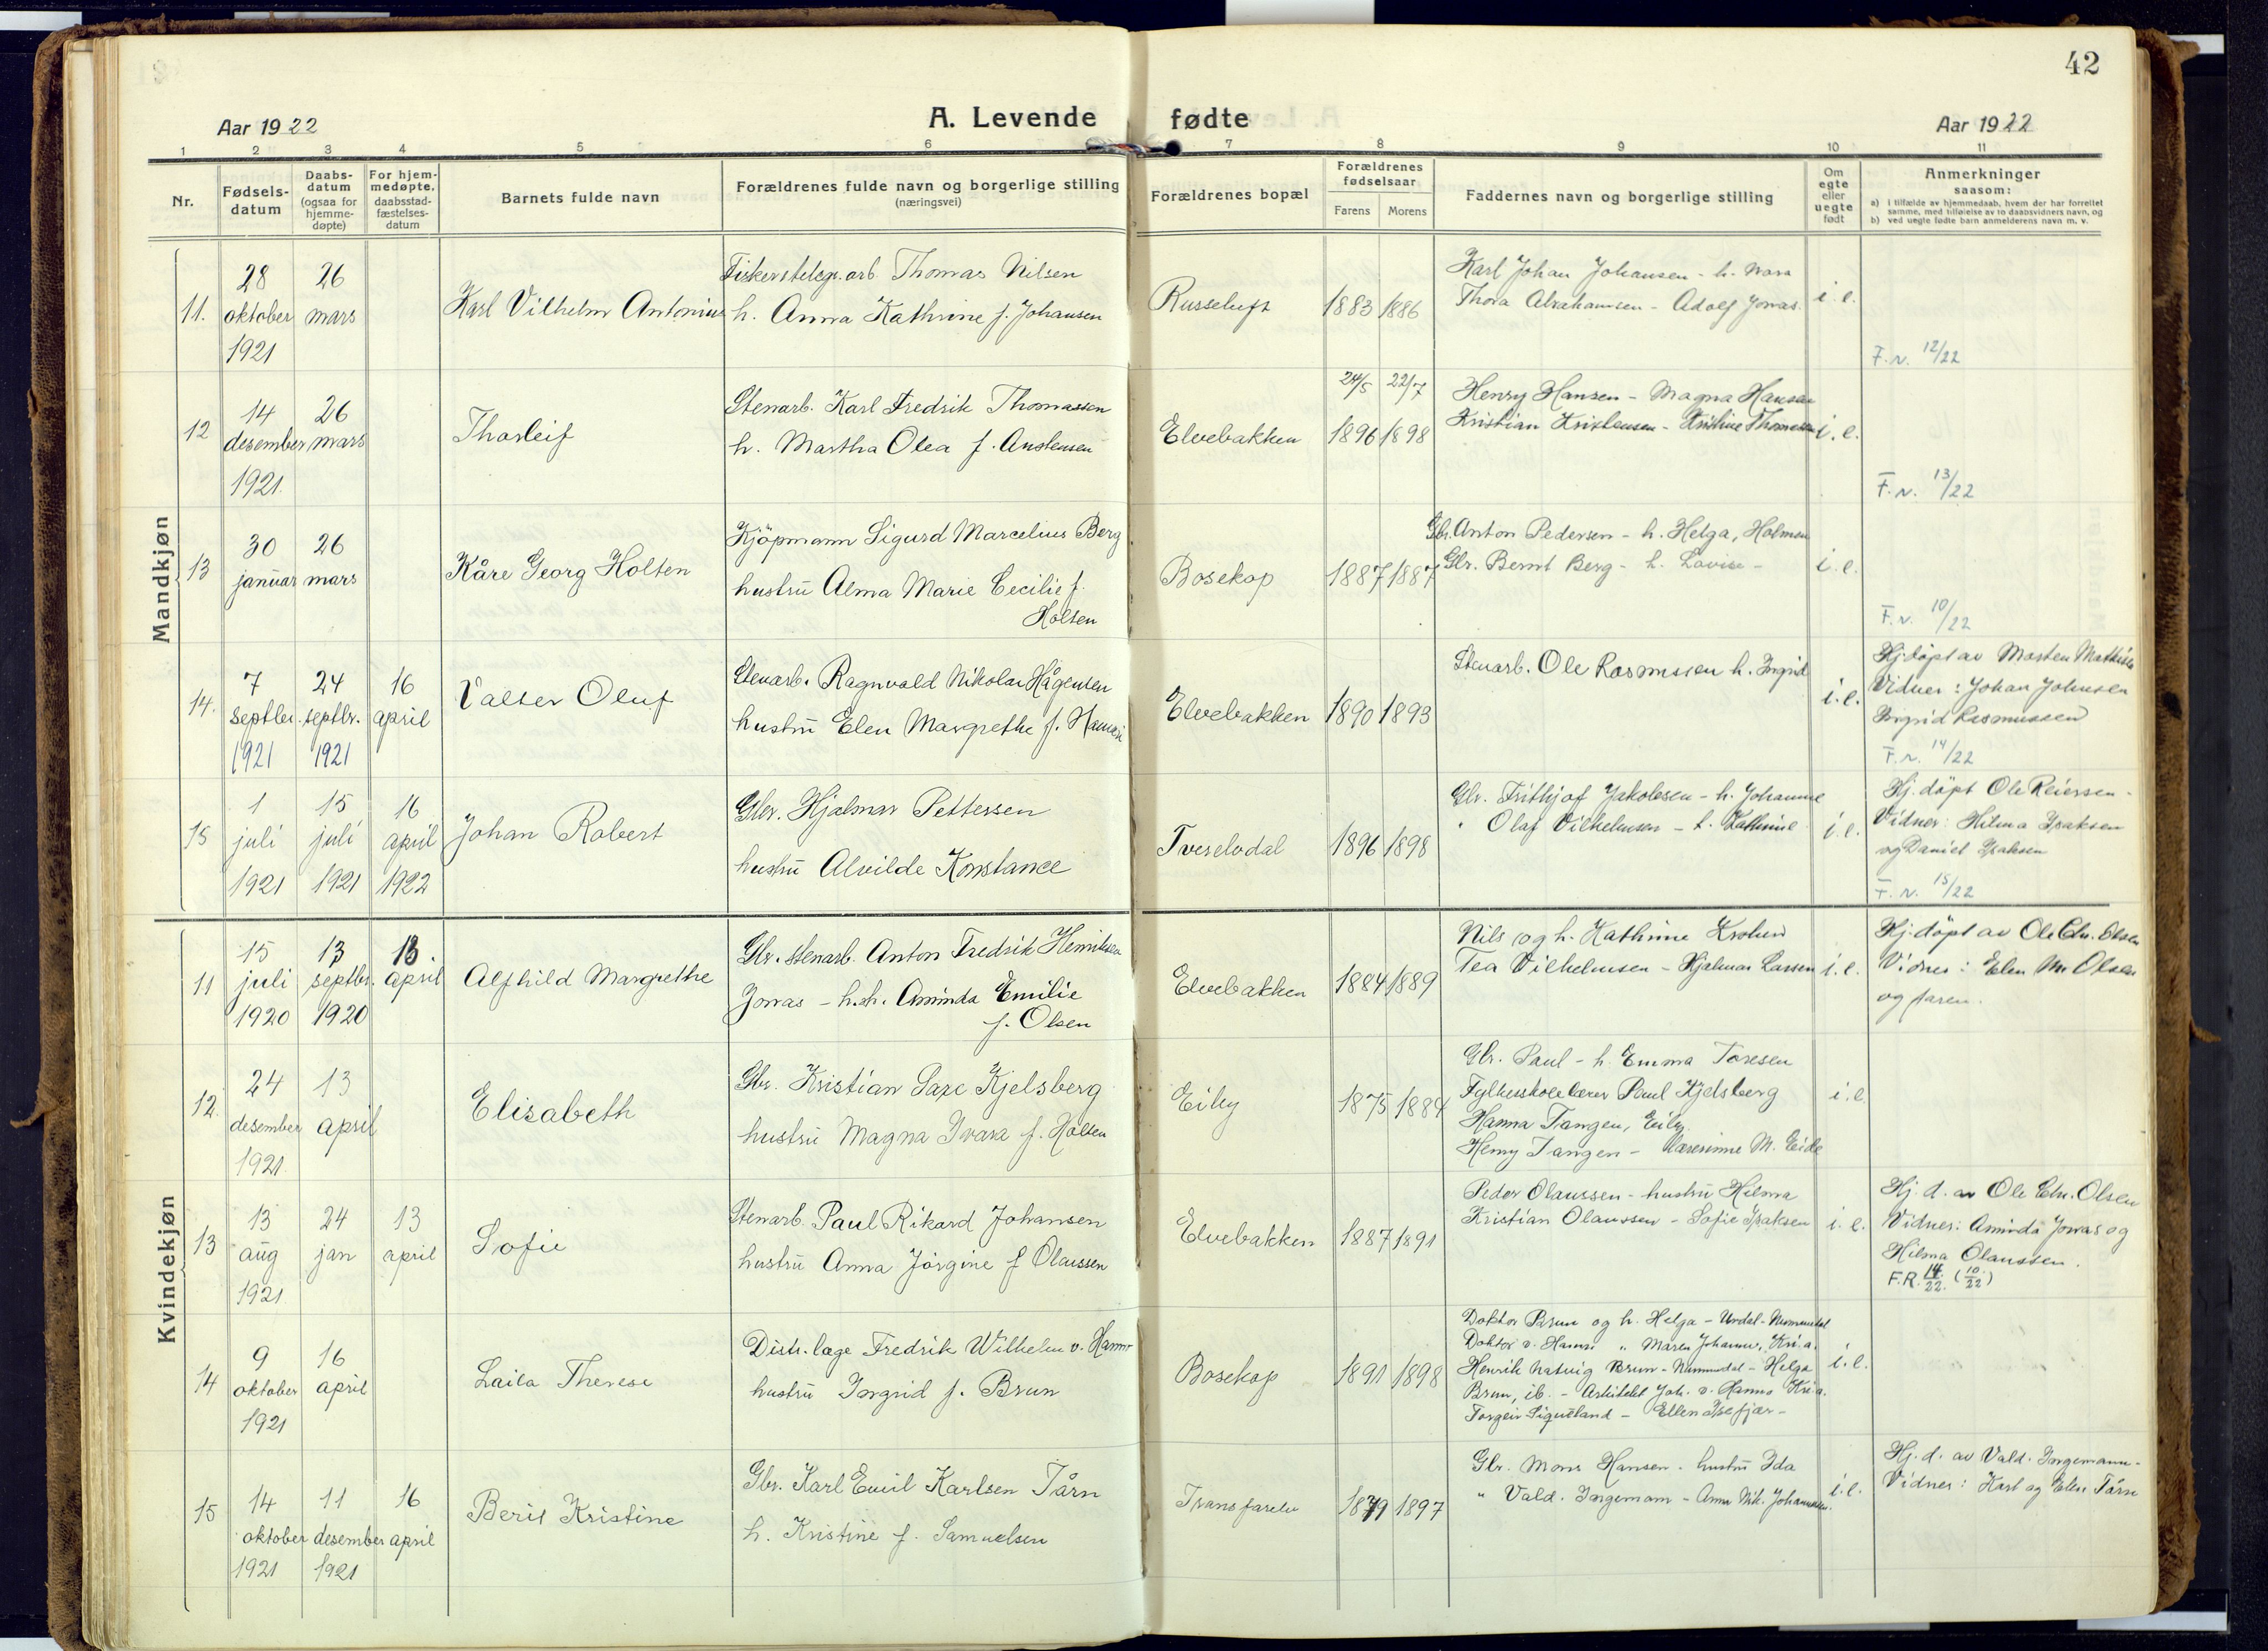 42
Aar 1922
A. Levende fødte
Aar 1922
1 2 3 4 5 6 7 8 9 10 11
Nr.
Fødsels-
datum
Daabs-
datum
(ogsaa for
hjemme-
døpte)
For hjem-
medøpte,
daabsstad-
fæstelses-
datum
Barnets fulde navn
Forældrenes fulde navn og borgerlige stilling
(næringsvei)
Forældrenes bopæl
Forældrenes
fødselsaar
Farens Morens
Faddernes navn og borgerlige stilling
Om
egte
eller
uegte
født
Anmerkninger
saasom:
a) i tilfælde av hjemmedaab, hvem der har forrettet
samme, med tilføielse av to daabsvidners navn, og
b) ved uegte fødte barn anmelderens navn m. v.
Mandkjøn
11.
28
oktober
1921
26
mars
Karl Vilhelm Antonius
Fisker telegr. arb. Thomas Nilsen
h. Anna Kathrine f. Johansen
Russeluft
1883 1886
Karl Johan Johansen - h. Nora
Thora Abrahamsen - Adolf Jonas.
i. e.
F. r. 12/22
12
14
desember
1921.
26
mars
Thorleif
Stenarb. Karl Fredrik Thomassen
h. Martha Olea f. Anstensen
Elvebakken
24/5 22/7
1896 1898
Henry Hansen - Magna Hansen
Kristian Kristensen - Kristine Thomassen
i. e.
F. r. 13/22
13
30
januar
26
mars
Kåre Georg Holten
Kjöpmann Sigurd Marcelius Berg
hustru Alma Marie Cecilie f.
Holten
Bosekop
1887 1887
Gbr. Anton Pedersen - h. Helga, Holmen
Gbr. Bernt Berg - h. Lovise -
i. e.
F. r. 10/22
14.
7
septbr.
1921
24
septbr.
1921
16
april
Valter Oluf
Stenarb. Ragnvald Nikolai Hågensen
hustru Elen Margrethe f.
Elvebakken
1890 1893
Stenarb. Ole Rasmussen h. Ingrid
i. e.
Hj. döpt av Morten Mathisen
Vidner: Johan Johnsen
Sigrid Rasmussen
F. r. 14/22
15
1
juli
1921
15
juli
1921
16
april
1922
Johan Robert
Gbr. Hjalmar Pettersen
hustru Alvilde Konstance
Tverelvdal
1896 1898
Gbr. Frithjof Jakobsen - h. Johanne
" Olaf Vilhelmsen - h. Kathrine
i. e.
Hj. döpt Ole Reiersen -
Vidner: Hilma Isaksen
og Daniel Isaksen
F. r. 15/22
Kvindekjøn
11
15
juli
1920
13
septbr.
1920
13.
april
Alfhild Margrethe
Gbr. stenarb. Anton Fredrik Henriksen
Jonas - h. h. Aminda Emilie
f. Olsen
Elvebakken
1884 1889
Nils og h. Kathrine Krohn
Tea Vilhelmsen - Hjalmar Larsen
i. e.
Hj. döpt av Ole Chr. Olsen
Vidner: Elen M. Olsen
og faren.
12.
24
desember
1921.
13
april
Elisabeth
Gbr. Kristian Saxe Kjelsberg
hustru Magna Ivara f. Holten
Eiby
1875 1884
Gbr. Paul - h. Emma Toresen
Fylkesskolelærer Paul Kjelsberg
Hanna Tangen, Eiby.
Henry Tangen - Lærerinne M. Eide
i. e.
13
13
aug
1921
24
jan
13
april
Sofie
Stenarb. Paul Rikard Johansen
hustru Anna Jörgine f Olaussen
Elvebakken
1887 1891
Peder Olaussen - hustru Hilma
Kristian Olaussen - Sofie Isaksen
i. e.
Hj. d. av Ole Chr. Olsen
Vidner: Aminda Jonas og
Hilma Olaussen.
F.R. 14/22. (10/22)
14
9
oktober
1921
16
april
Laila Therese
Distr. læge Fredrik Wilhelm v. Hanno
hustru Ingrid f. Brun
Bosekop
1891 1898
Doktor Brun og h. Helga - Uvdal - Nummedal
Doktor v. Hanno " Maren Johanne, Kr.a.
Henrik Natvig Brun - Nummedal - Helga
Brun, ib. - Arkitekt Joh. v. Hanno Kr.a.
Torgeir Siqveland - Ellen
i. e.
15
14
oktober
1921
11
desember
1921
16
april
Berit Kristine
Gbr. Karl Emil Karlsen Tårn
h. Kristine f. Samuelsen
Transfarelv
1879 1897
Gbr. Mons Hansen - hustru Ida
" Vald. Ingemann - Anna Nik. Johannesen.
i. e.
Hj. d. av Vald. Ingemann -
Vidner: Karl og Elen Tårn